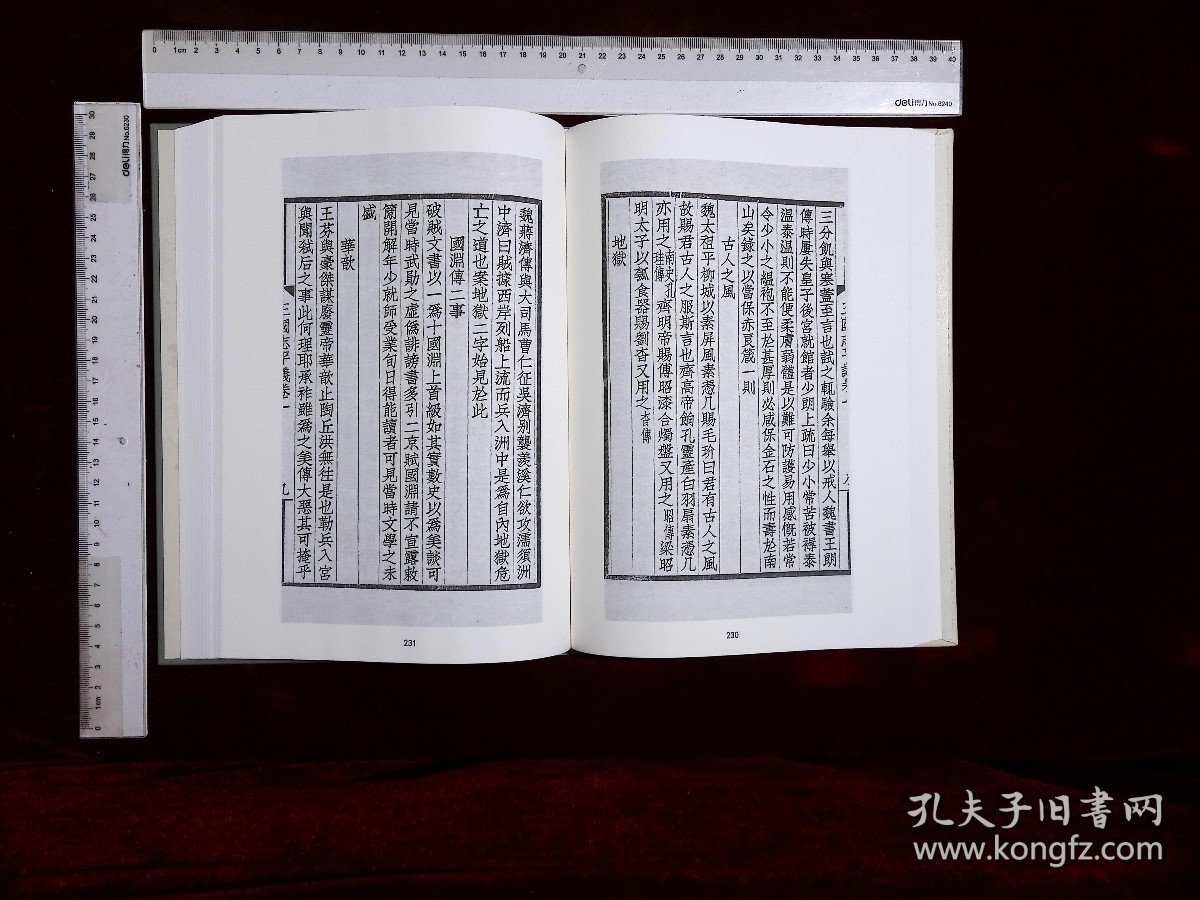 三分飢與寒蓋至言也試之輒驗余每舉以戒人魏書王朗
傳時屢失皇子後宮就館者少朗上疏曰少小常苦被褥泰
溫泰溫則不能便柔膚弱體是以難可防護易用感慨若常
令少小之縕袍不至於甚厚則必咸保金石之性而壽於南
山矣錄之以當保赤良箴一則
古人之風
魏太祖平柳城以素屏風素憑几賜毛玠曰君有古人之風
故賜君古人之服斯言也齊高帝餉孔靈產白羽扇素憑几
亦用之南史孔珪傳齊明帝賜傅昭漆合燭盤又用之昭傳梁昭
明太子以瓠食器賜劉杳又用之杳傳
地獄
魏蔣濟傳與大司馬曹仁征吳濟別襲羨溪仁欲攻濡須洲
中濟曰賊據西岸列船上流而兵入洲中是爲自內地獄危
亡之道也案地獄二字始見於此
國淵傳二事
破賊文書以一爲十國淵上首級如其實數史以爲美談可
見當時武勛之虛僞誹謗書多引二京賦國淵請不宣露敕
簡開解年少就師受業旬日得能讀者可見當時文學之未
盛
華歆
王芬與豪傑謀廢靈帝華歆止陶丘洪無往是也勒兵入宮
與聞弒后之事此何理耶承祚雖爲之美傳大惡其可掩乎
三國志平議卷一
九
230
231
deli得力 No.6240
deli得力 No.6230
孔夫子旧书网
www.kongfz.com